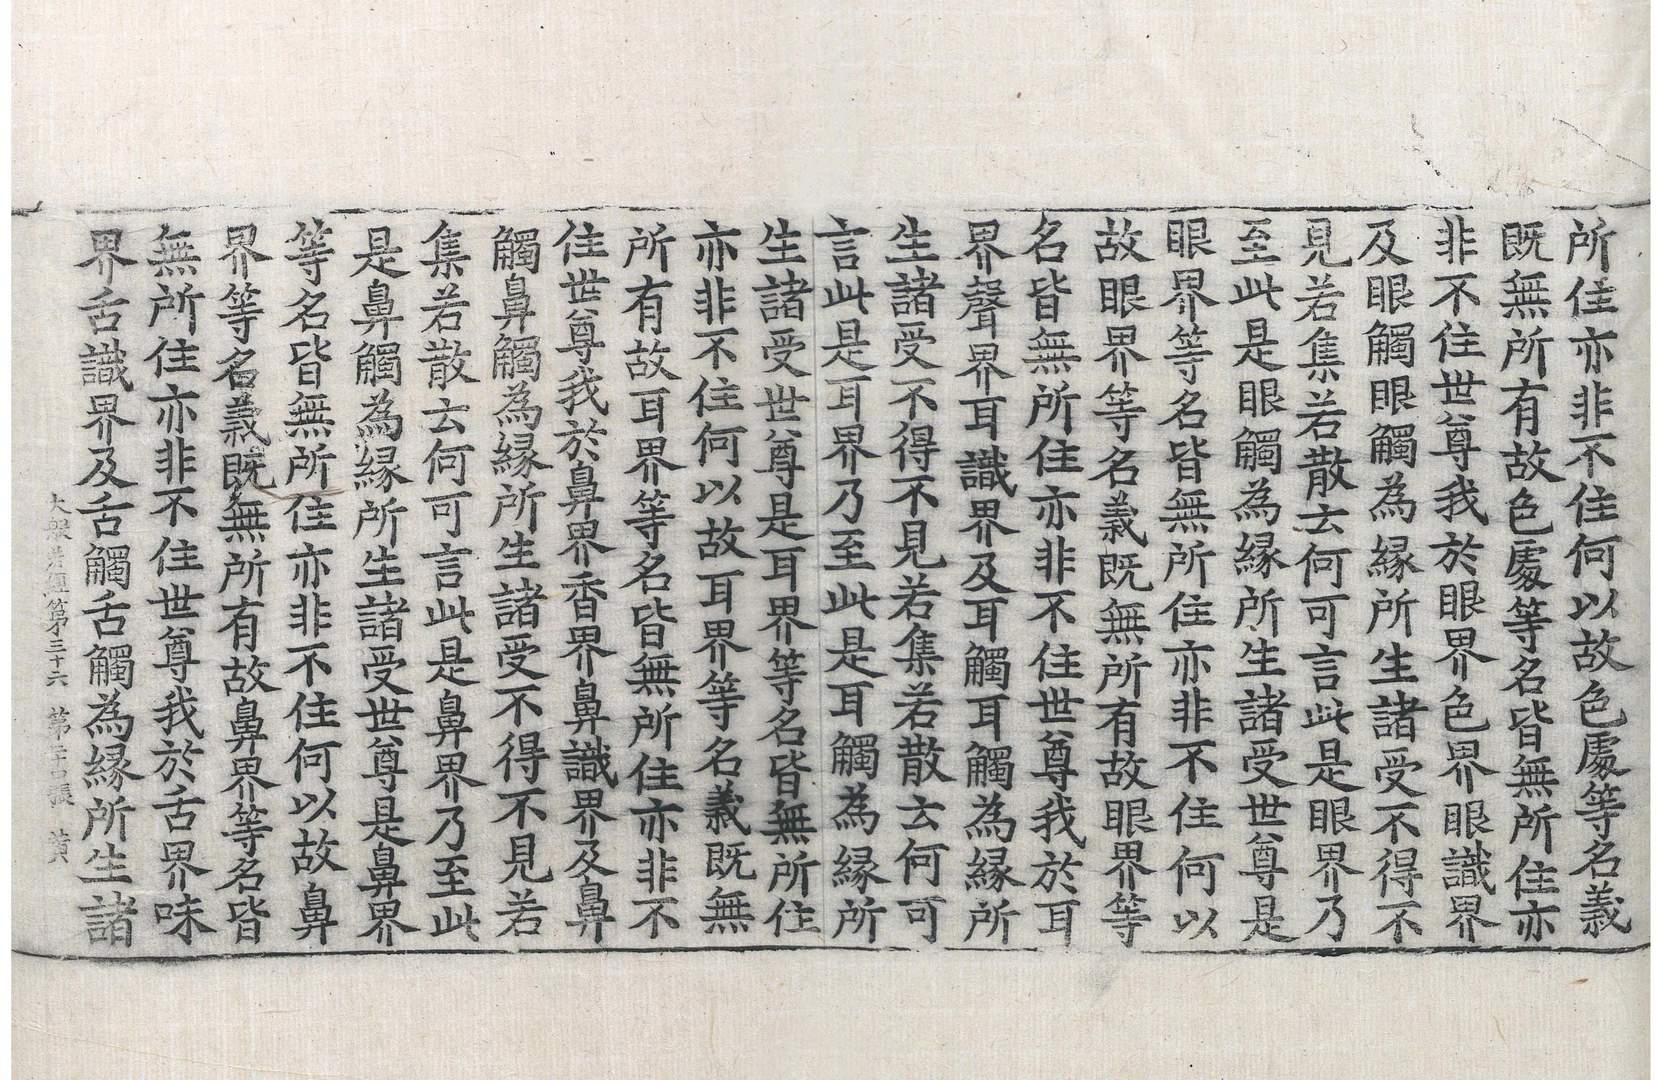 所住亦非不住何以故色處等名義
既無所有故色處等名皆無所住亦
非不住世尊我於眼界色界眼識界
及眼觸眼觸為縁所生諸受不得不
見若集若散云何可言此是眼界乃
至此是眼觸為縁所生諸受世尊是
眼界等名皆無所住亦非不住何以
故眼界等名義既無所有故眼界等
名皆無所住亦非不住世尊我於耳
界聲界耳識界及耳觸耳觸為縁所
生諸受不得不見若集若散云何可
言此是耳界乃至此是耳觸為縁所
生諸受世尊是耳界等名皆無所住
亦非不住何以故耳界等名義既無
所有故耳界等名皆無所住亦非不
住世尊我於鼻界香界鼻識界及鼻
觸鼻觸為縁所生諸受不得不見若
集若散云何可言此是鼻界乃至此
是鼻觸為縁所生諸受世尊是鼻界
等名皆無所住亦非不住何以故鼻
界等名義既無所有故鼻界等名皆
無所住亦非不住世尊我於舌界味
界舌識界及舌觸舌觸為縁所生諸
大般若經第三十六 第 張 黃